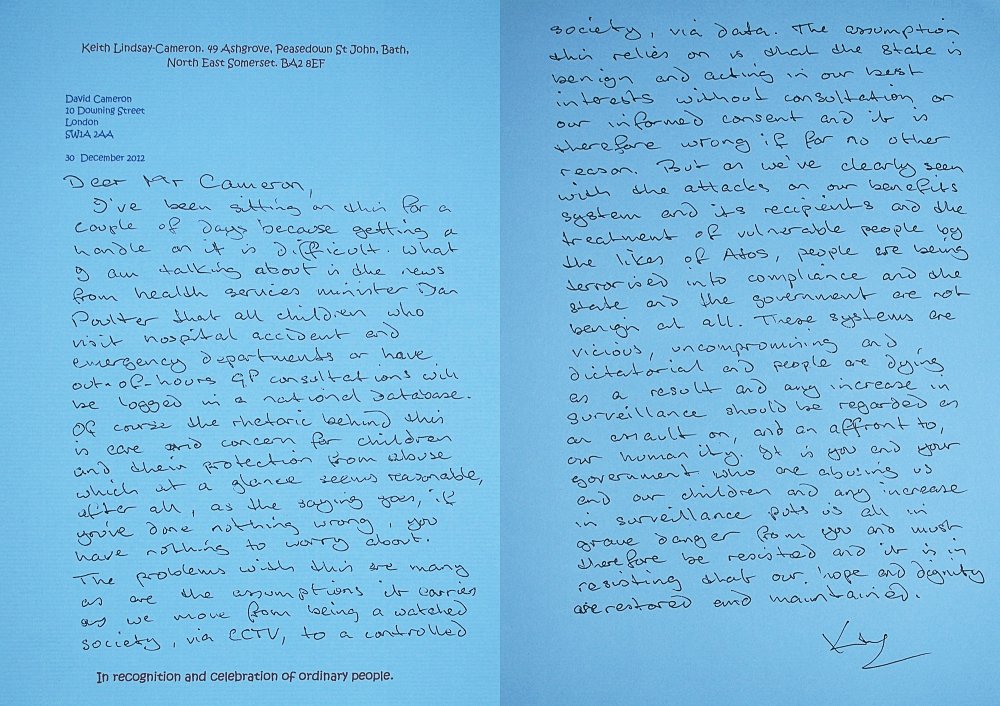 Keith Lindsay-Cameron. 49 Ashgrove, Peasedown St John, Bath,
North East Somerset. BA2 8EF
David Cameron
10 Downing Street
London
SW1A 2AA
30 December 2012
Dear Mr Cameron,
I've been sitting on this for a
couple of days because getting a
handle on it is difficult. What
I am talking about is the news
from health services minister Dan
Poulter that all children who
visit hospital accident and
emergency departments or have
out-of-hours GP consultations will
be logged in a national database.
Of course the rhetoric behind this
is care and concern for children
and their protection from abuse
which at a glance seems reasonable,
after all, as the saying goes, 'if
you've done nothing wrong, you
have nothing to worry about.
The problems with this are many
as are the assumptions it carries
as we move from being a watched
society, via CCTV, to a controlled
In recognition and celebration of ordinary people.
society, via data. The assumption
this relies on is that the State is
benign and acting in our best
interests without consultation or
our informed consent and it is
therefore wrong if for no other
reason. But as we've clearly seen
with the attacks on our benefits
system and its recipients and the
treatment of vulnerable people by
the likes of Atos, people are being
terrorised into compliance and the
state and the government are not
benign at all. These systems are
vicious, uncompromising and
dictatorial and people are dying
as a result and any increase in
surveillance should be regarded as
an assault on, and an affront to,
our humanity. It is you and your
government who are abusing us
and our children and any increase
in surveillance puts us all in
grave danger from you and must
therefore be resisted and it is in
resisting that our hope and dignity
are restored and maintained.